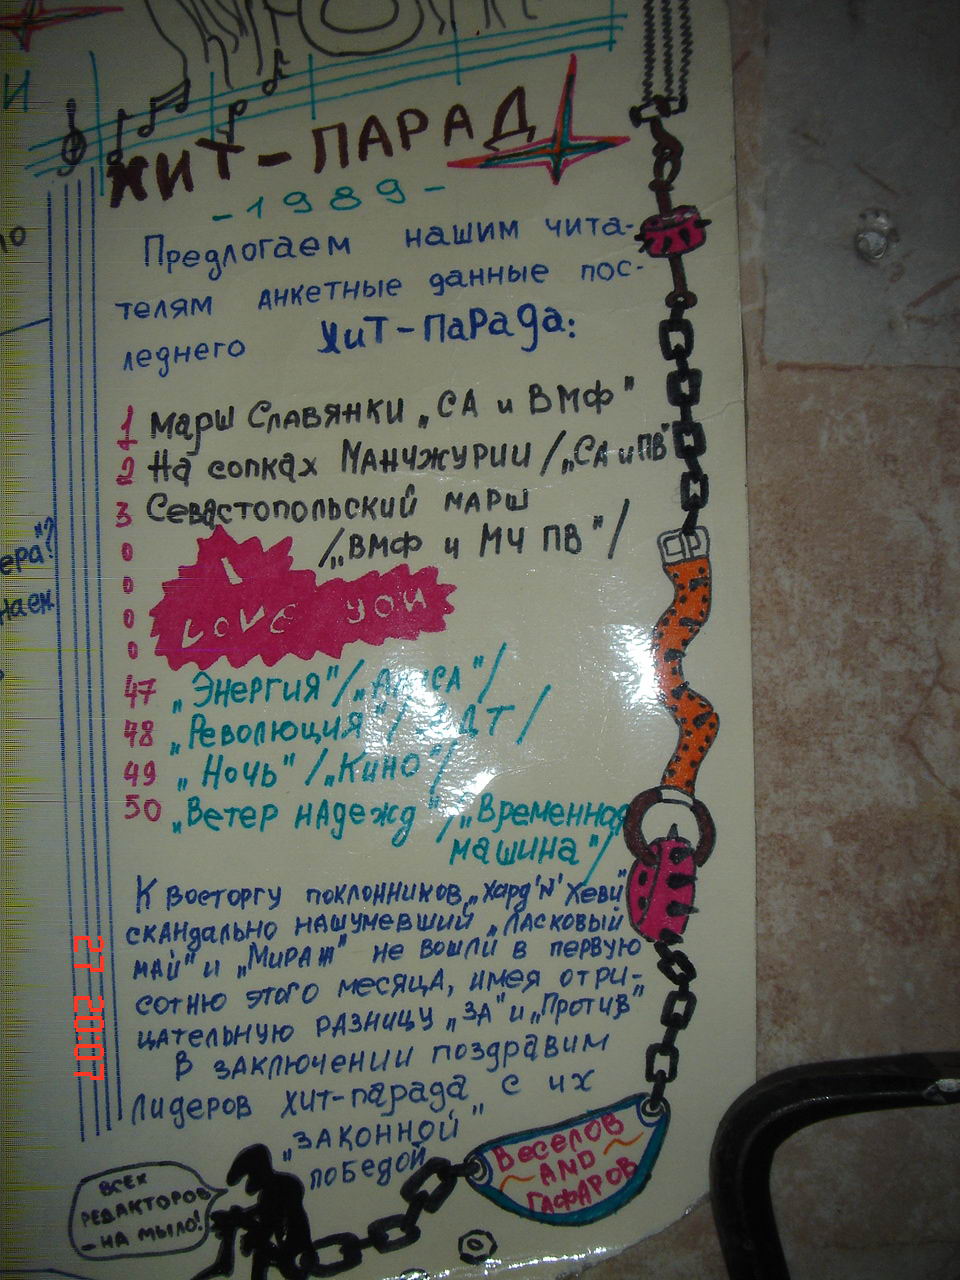 ХИТ-ПАРАД
-1989-
Предлогаем нашим чита-
телям анкетные данные пос-
леднего Хит-Парада:
1 Марш Славянки „СА и ВМФ"
2 На сопках Манчжурии /„СА и ПВ"
3 Севастопольский марш
/„ВМФ и МЧ ПВ"/
0
0
0
0
I
LOVE YOU
47 „Энергия"/„Алиса"/
48 „Революция"/ ДДТ/
49 „Ночь"/„Кино"/
50 „Ветер надежд"/„Временная
машина"/
К восторгу поклонников „Хард'N'Хеви"
скандально нашумевший „Ласковый
май" и „Мираж" не вошли в первую
сотню этого месяца, имея отри-
цательную разницу „ЗА" и „Против"
В заключении поздравим
лидеров хит-парада с их
„законной"
победой
Веселов
AND
Гафаров
ВСЕХ
РЕДАКТОРОВ
- НА МЫЛО!
и
ло
ера"?
наем
27 20:07